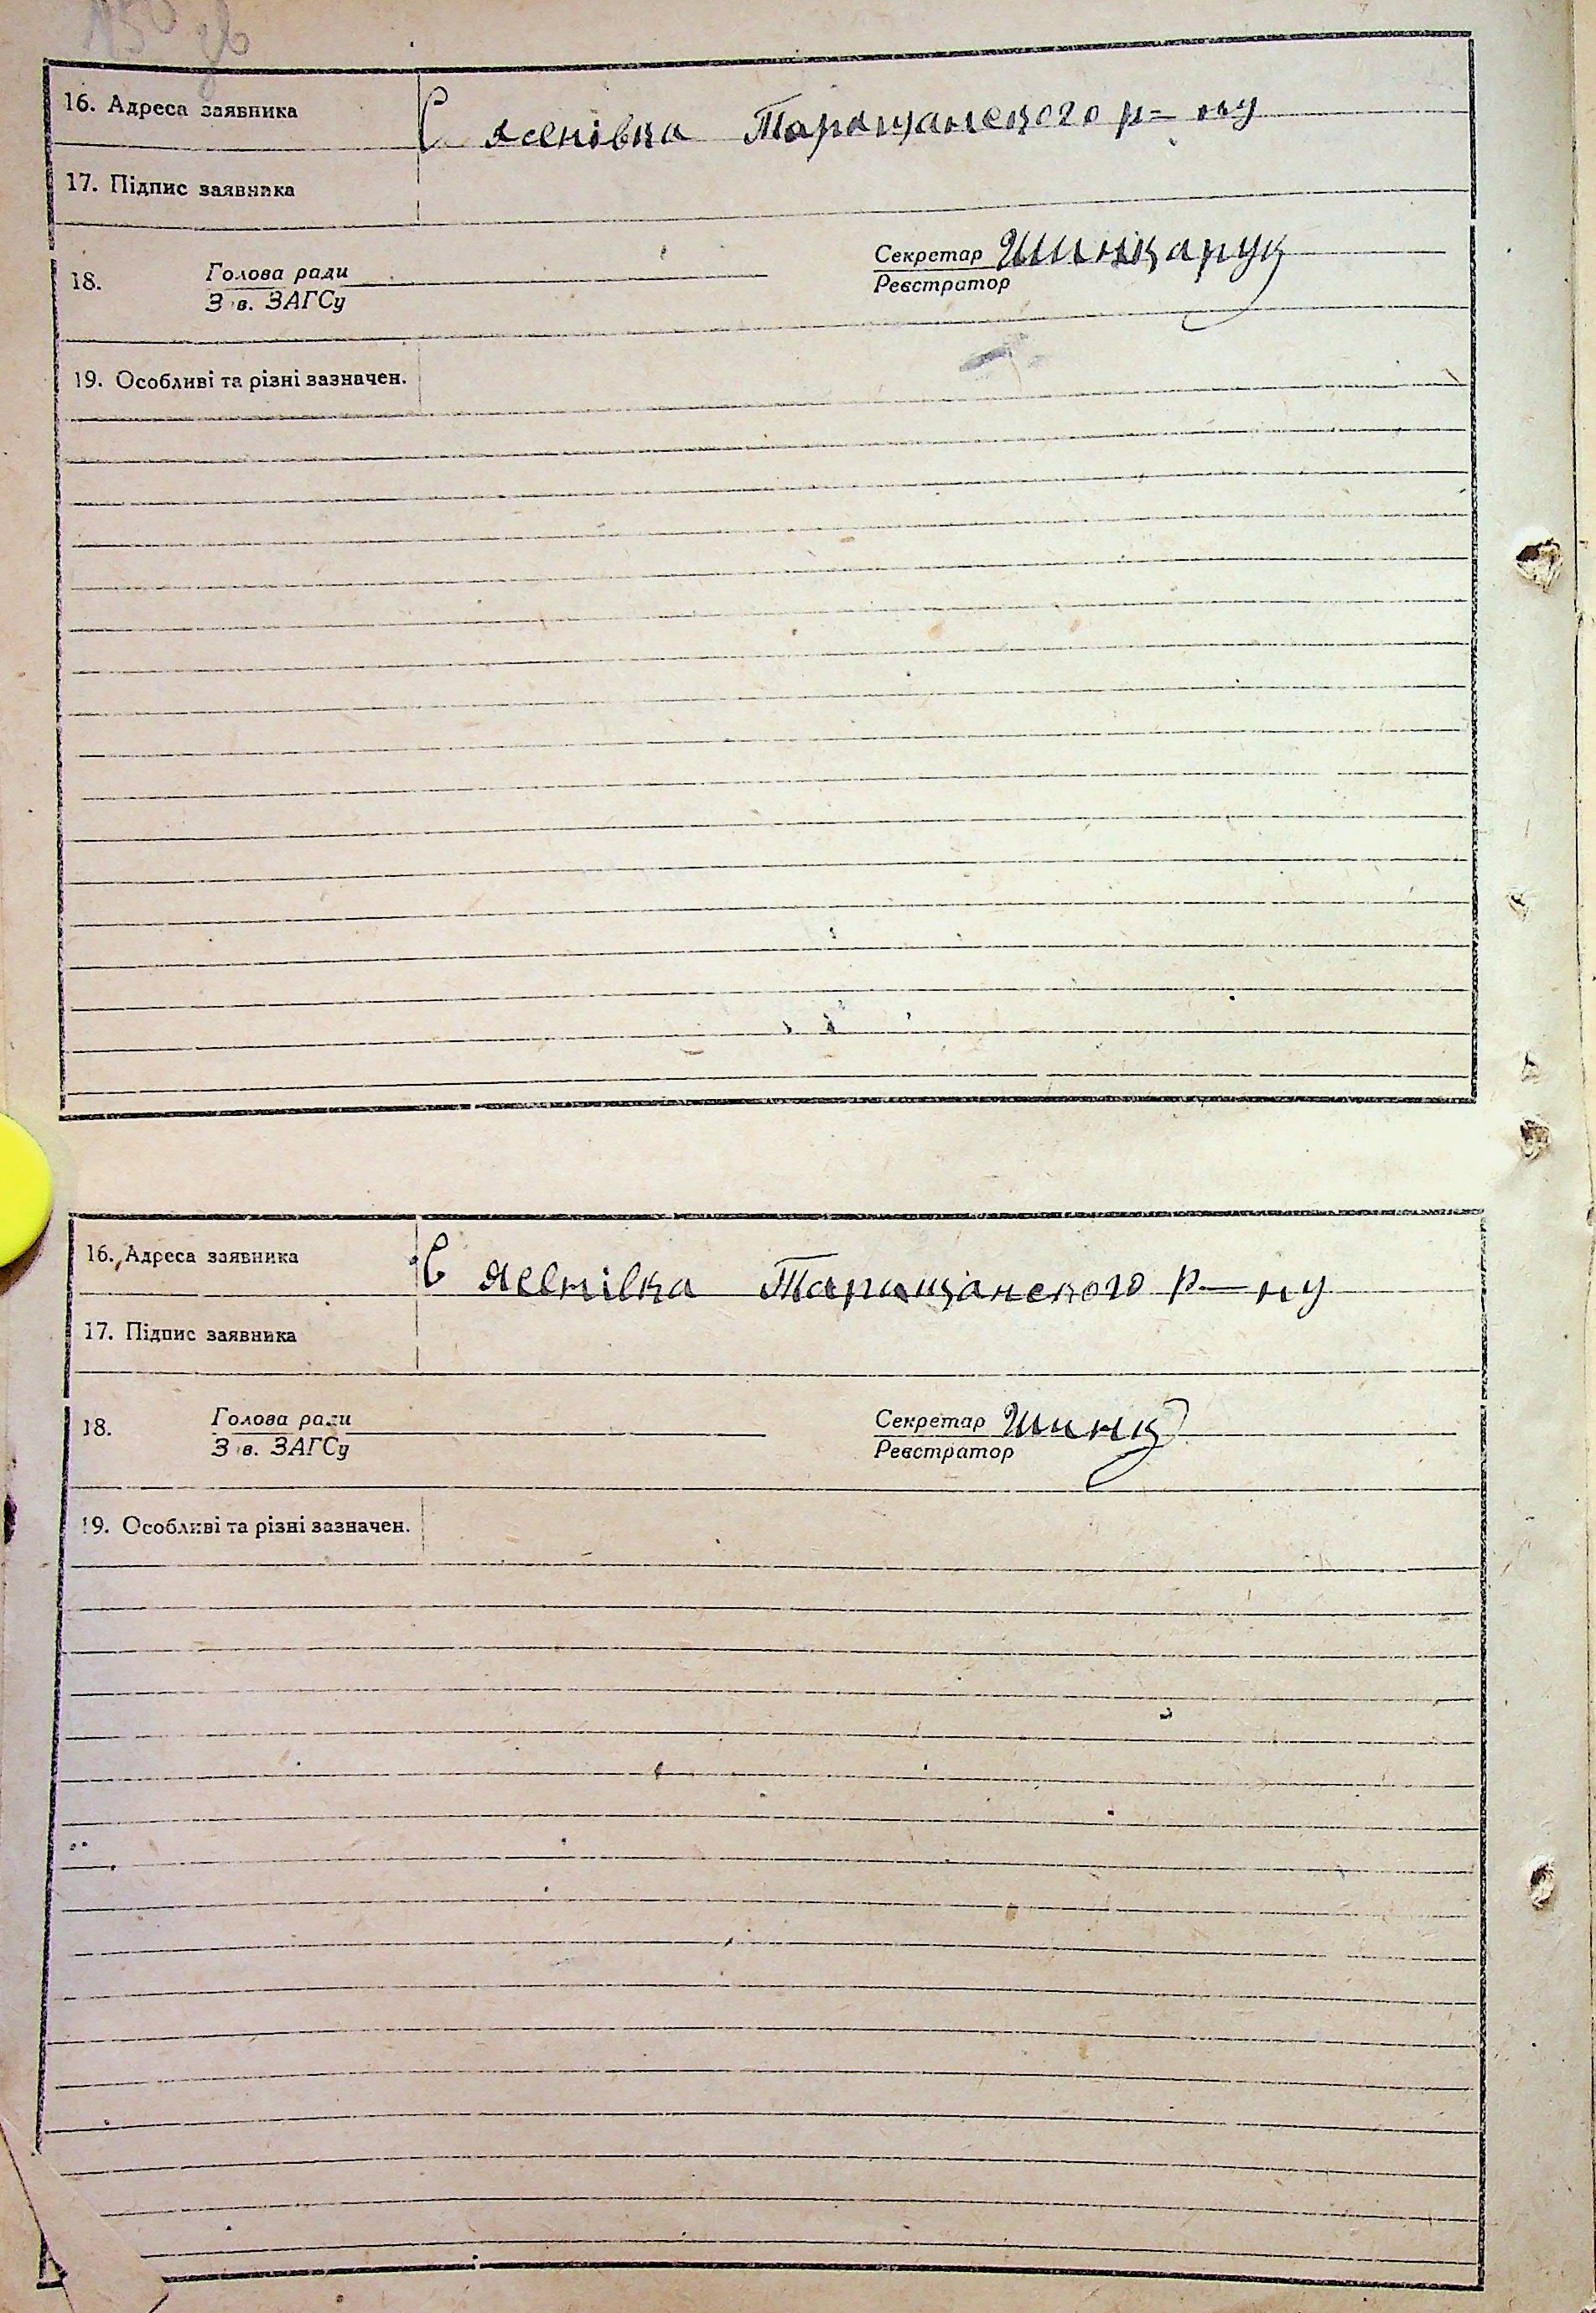 150 зв
16. Адреса заявника С Ясенівка Таращанского р-ну
17. Підпис заявника
18. Голова ради Секретар Шинкарук
Зав. ЗАГСу Реєстратор
19. Особливі та різні зазначен.
16. Адреса заявника С Ясенівка Таращанского р-ну
17. Підпис заявника
18. Голова ради Секретар Шинк
Зав. ЗАГСу Реєстратор
19. Особливі та різні зазначен.